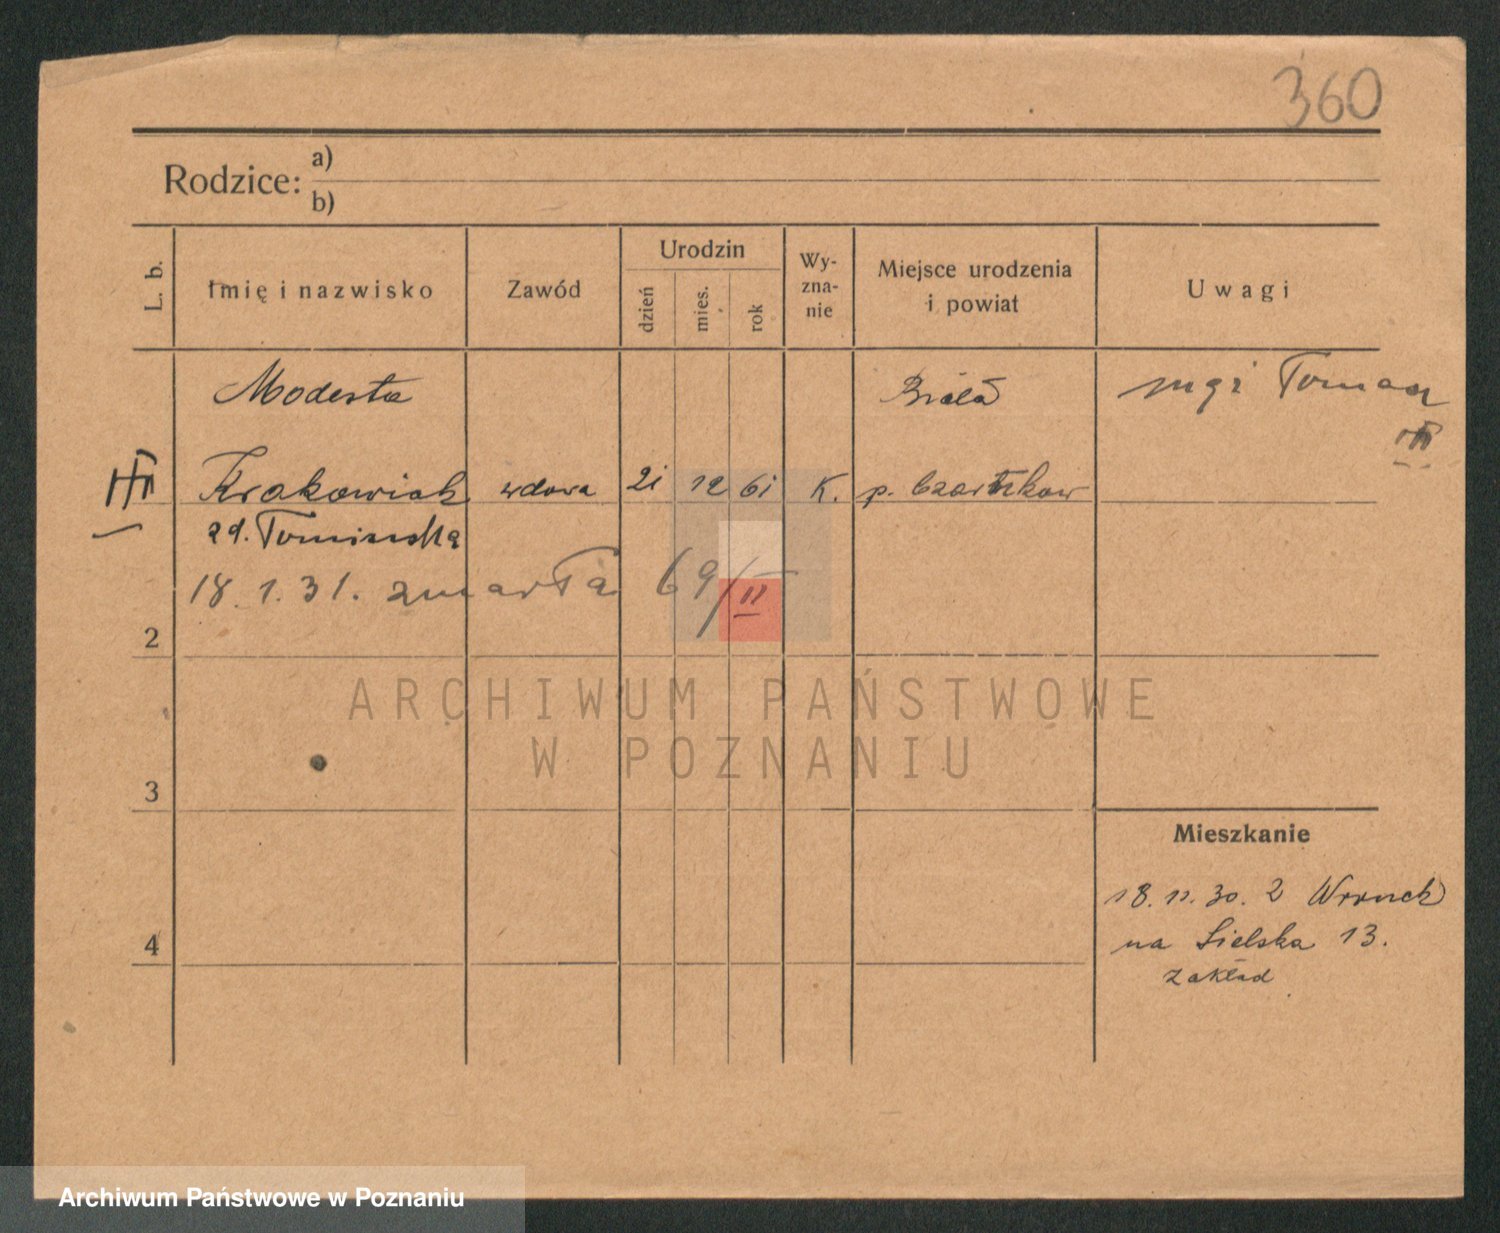 360
Rodzice: a)
b)
L. b.
Imię i nazwisko
Zawód
Urodzin
dzień
mies.
rok
Wy-
zna-
nie
Miejsce urodzenia
i powiat
Uwagi
Modesta
Biała
mąż Tomasz
Krakowiak wdowa 21 12 61 K. p. Czarnkow
zd. Tomińska
18.1.31. zmarła 69/II
2
ARCHIWUM PAŃSTWOWE
W POZNANIU
3
Mieszkanie
18.11.30. z Wronek
na Sielska 13.
4
zakład
Archiwum Państwowe w Poznaniu